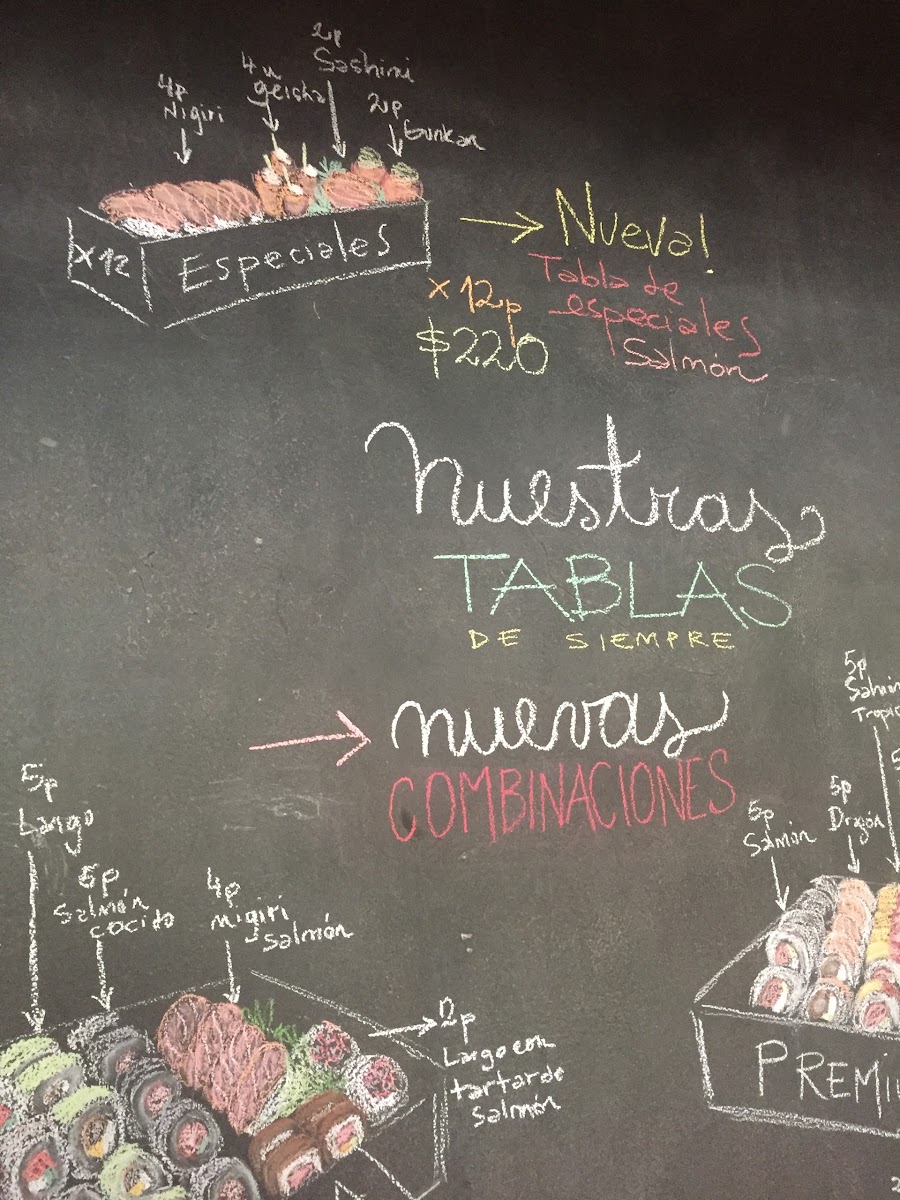 2p
Sashimi
4u
geisha
4p
Nigiri
2p
Gunkan
x12
Especiales
Nueva!
Tabla de
especiales
Salmón
x 12p
$220
nuestras
TABLAS
DE SIEMPRE
nuevas
COMBINACIONES
5p
Largo
5p
Salmón
cocido
4p
nigiri
Salmón
2p
Largo con
tartar de
Salmón
5p
Tropic
5p
Salmón
5p
Dragón
PREMI